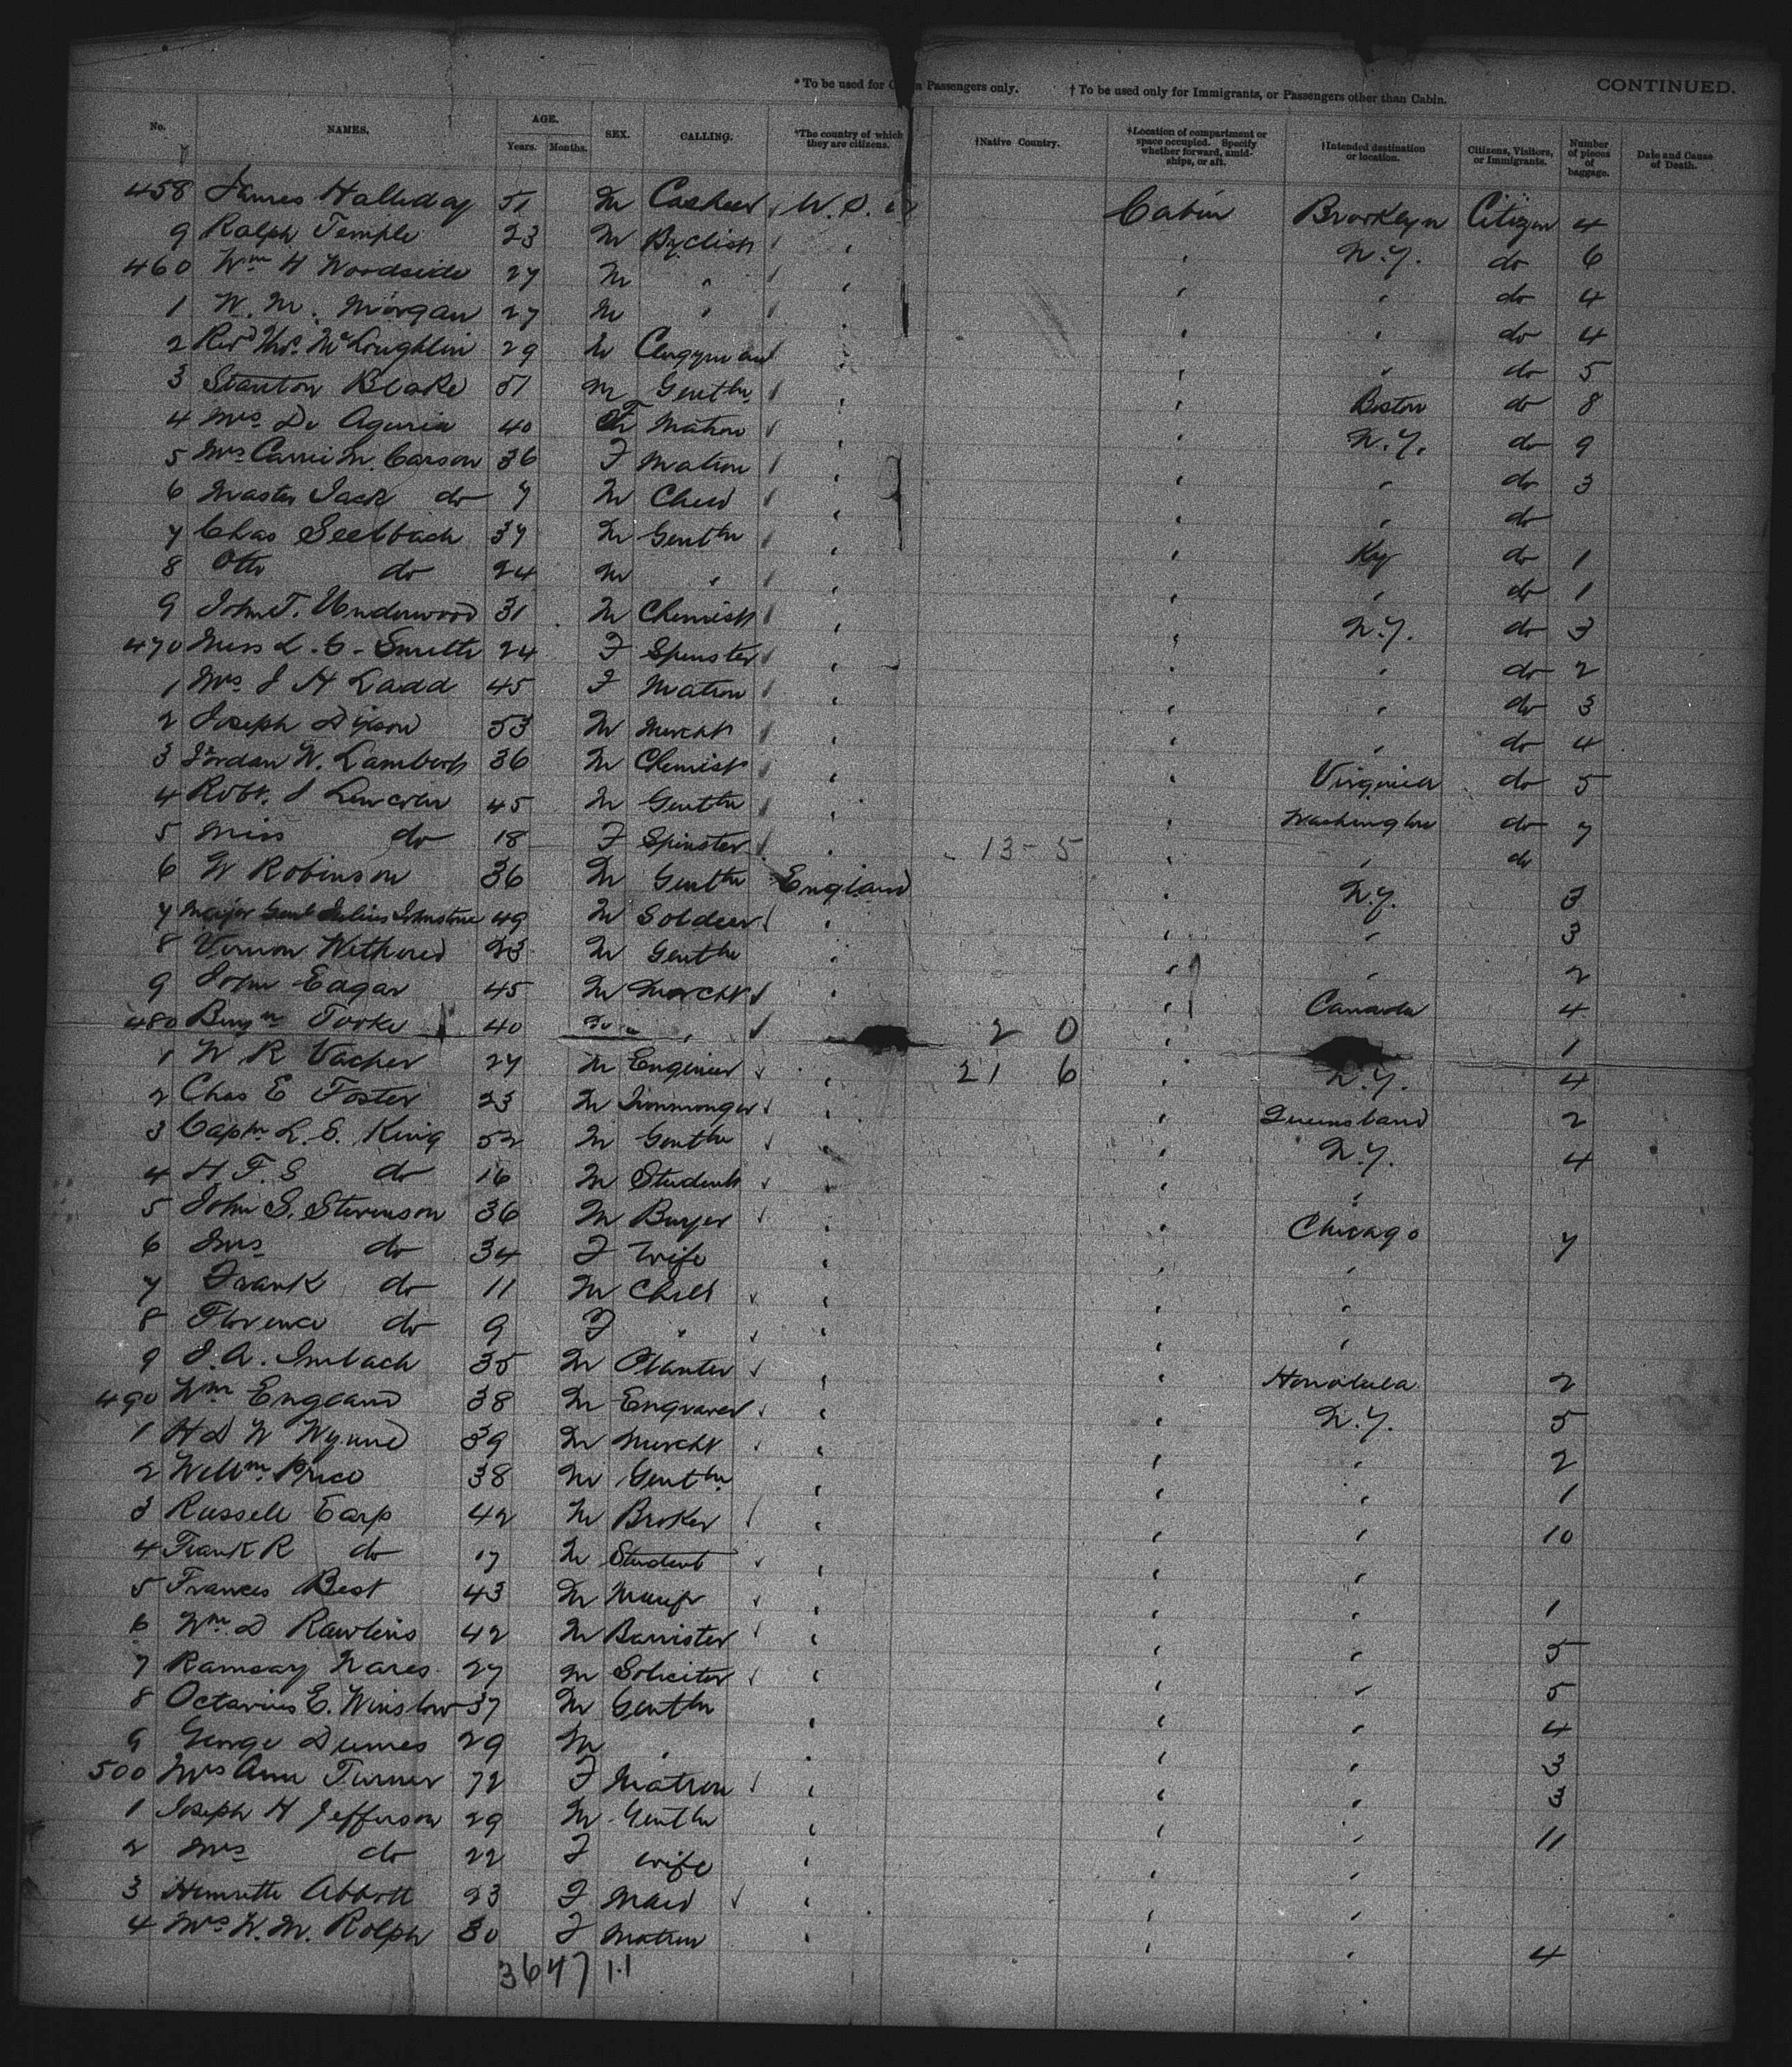 * To be used for Cabin Passengers only. † To be used only for Immigrants, or Passengers other than Cabin. CONTINUED.
No. NAMES. AGE. Years. Months. SEX. CALLING. *The country of which they are citizens. †Native Country. †Location of compartment or space occupied. Specify whether forward, amidships, or aft. †Intended destination or location. Citizens, Visitors, or Immigrants. Number of pieces of baggage. Date and Cause of Death.
458 James Halliday 51 M U.S. Cabin Brooklyn Citizen 4
9 Ralph Temple 23 M Byclist " " N.Y. do 6
460 Wm H Woodside 27 M " " " " do 4
1 W. M. Morgan 27 M " " " " do 4
2 Revd Thos. McLoughlin 29 M Clergyman " " " do 5
3 Stanton Blake 51 M Gentln " " Boston do 8
4 Mrs De Aguria 40 F Matron " " N.Y. do 9
5 Mrs Carrie M. Carson 36 F Matron " " " do 3
6 Master Jack do 7 M Child " " " do
7 Chas Seelbach 37 M Gentln " " Ky do 1
8 Otto do 24 M " " " " do 1
9 John T. Underwood 31 M Chemist " " N.Y. do 3
470 Miss L. C. Smith 24 F Spinster " " " do 2
1 Mrs J H Ladd 45 F Matron " " " do 3
2 Joseph Dixon 53 M Mercht " " " do 4
3 Jordan W. Lambert 36 M Chemist " " Virginia do 5
4 Robt. J Lincoln 45 M Gentln " " Washington do 7
5 Miss do 18 F Spinster " 13-5 " " do
6 W Robinson 36 M Gentln England " N.Y. 3
7 Major Genl Julius Johnstone 49 M Soldier " " " 3
8 Vernon Wethered 23 M Gentln " " " 2
9 John Eagar 45 M Mercht " " Canada 4
480 Benjn Tooke 40 M " 2 0 " 1
1 W R Vacher 27 M Engineer " 21 6 " N.Y. 4
2 Chas E Foster 23 M Ironmonger " " Queensland 2
3 Captn L. S. King 52 M Gentln " " N.Y. 4
4 H. F. S do 16 M Student " " "
5 John S. Stevenson 36 M Buyer " " Chicago 7
6 Mrs do 34 F Wife " " "
7 Frank do 11 M Child " " "
8 Florence do 9 F " " " "
9 J. A. Imbach 35 M Planter " " Honolulu 2
490 Wm England 38 M Engraver " " N.Y. 5
1 H D W Wynne 39 M Mercht " " " 2
2 Willm. Price 38 M Gentln " " " 1
3 Russell Earp 42 M Broker " " " 10
4 Frank R do 17 M Student " " "
5 Frances Best 43 M Manfr " " " 1
6 Wm. D Rawlins 42 M Barrister " " " 5
7 Ramsay Nares 27 M Soliciter " " " 5
8 Octavius E. Winslow 37 M Gentln " " " 4
9 George 29 M " " " " 3
500 Mrs Ann Turner 72 F Matron " " " 3
1 Joseph H Jefferson 29 M Gentln " " " 11
2 Mrs do 22 F wife " " "
3 Henrietta Abbott 23 F Maid " " "
4 Mrs W. M. Rolph 30 F Matron " " " 4
3647 1.1